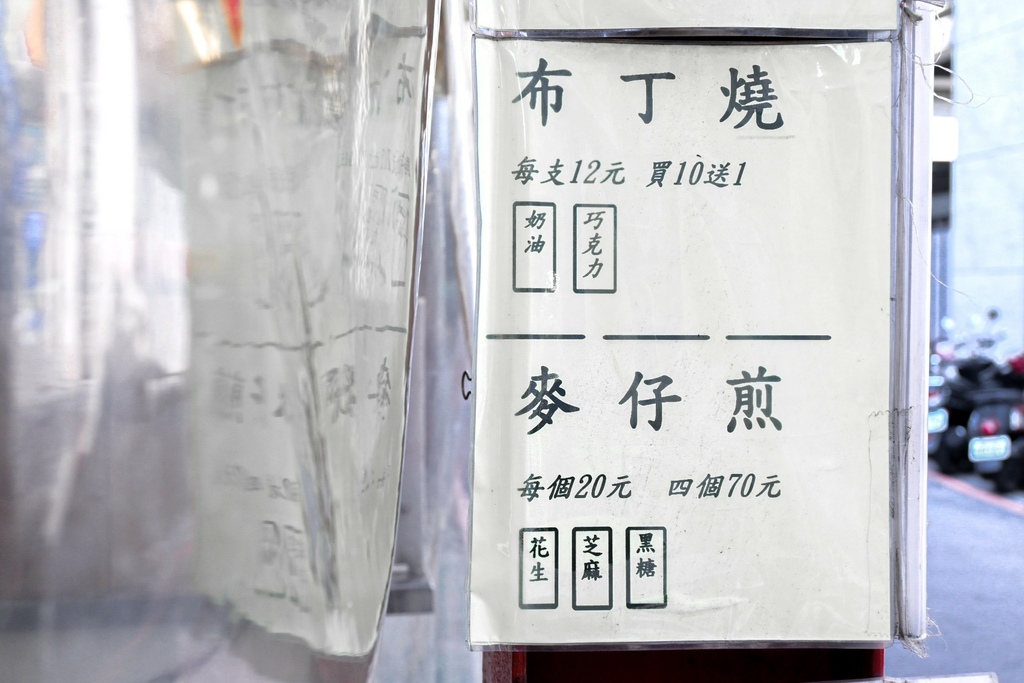 布丁燒
每支12元 買10送1
奶油 巧克力
麥仔煎
每個20元 四個70元
花生 芝麻 黑糖